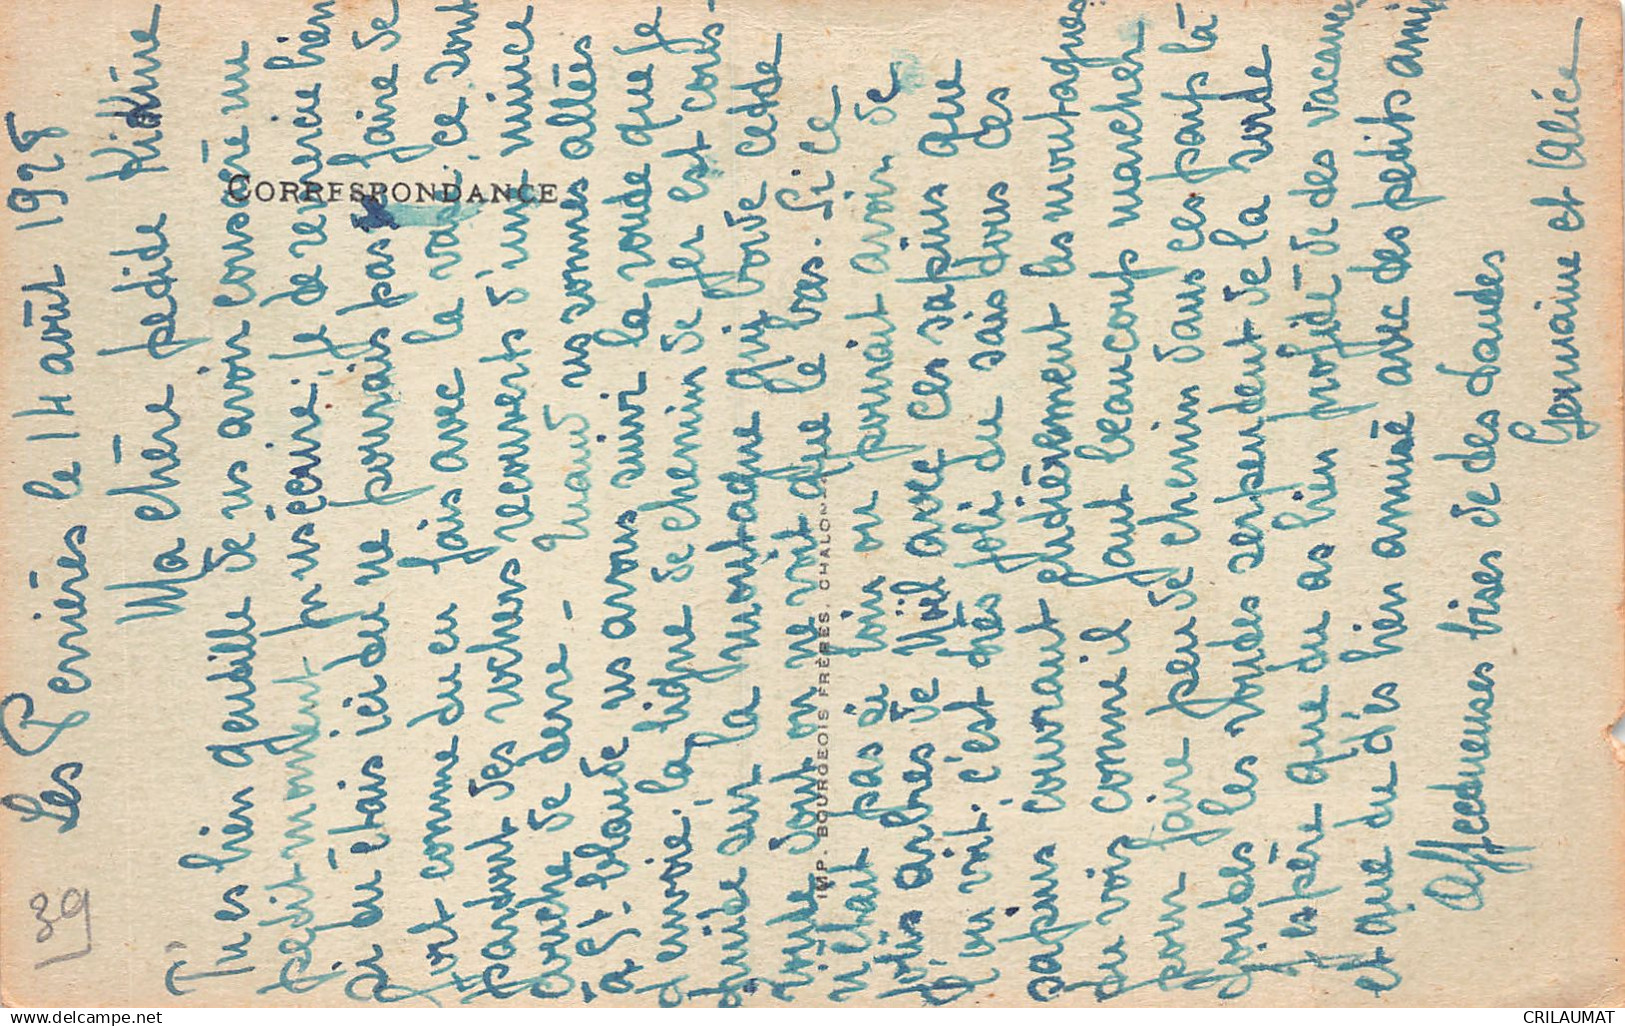 Les Perrières le 14 août 1928
Ma chère petite Kikine
Tu es bien gentille de ns avoir consacré un
petit moment pr ns écrire, je te remercie bien
Si tu étais ici tu ne pourrais pas faire de
comme tu en fais avec la va ce sont
pardout des rochers recouverts d'une mince
couche de terre - Quand ns sommes allées
à St. Claude ns avons suivi la route que je
t'envoie, la ligne de chemin de fer est cons-
truite sur la montagne qui borde cette
route dont on ne voit que le bas. Si ce
n'était pas si loin on pourrait avoir de
jolis arbres de Noël avec ces sapins que
l'on voit, c'est très joli tu sais tous ces
sapins couvrant entièrement les montagnes
Tu vois comme il faut beaucoup marcher
pour faire peu de chemin dans ces pays là
toutes les routes serpentent de la sorte
J'espère que tu as bien profité de tes vacances
et que tu t'es bien amusé avec tes petits amis
Affectueuses bises de tes tantes
Germaine et Alice
39
CORRESPONDANCE
IMP. BOURGEOIS FRÈRES, CHALON-
CRILAUMAT